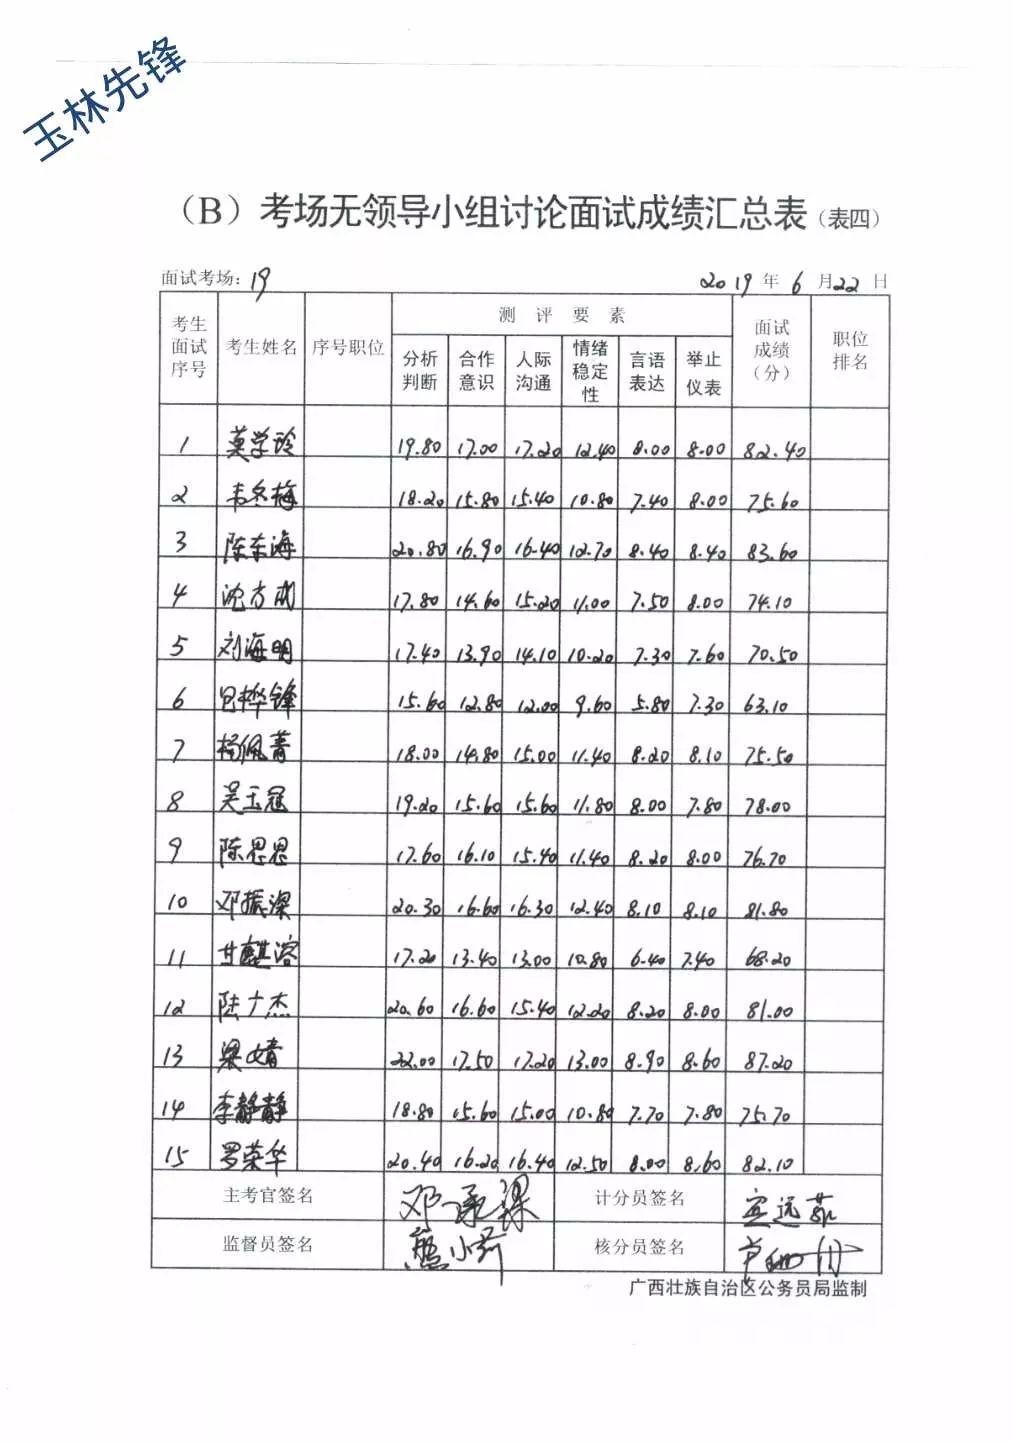 玉林先锋
（B）考场无领导小组讨论面试成绩汇总表（表四）
面试考场：19 2019年6月22日
考生面试序号 考生姓名 序号职位 测评要素 面试成绩（分） 职位排名
分析判断 合作意识 人际沟通 情绪稳定性 言语表达 举止仪表
1 莫学玲 19.80 17.00 17.20 12.40 8.00 8.00 82.40
2 韦冬梅 18.20 15.80 15.40 10.80 7.40 8.00 75.60
3 陈东海 20.80 16.90 16.40 12.70 8.40 8.40 83.60
4 沈方 17.80 14.60 15.20 11.00 7.50 8.00 74.10
5 刘海明 17.40 13.90 14.10 10.20 7.30 7.60 70.50
6 桦锋 15.60 12.80 12.00 9.60 5.80 7.30 63.10
7 杨佩菁 18.00 14.80 15.00 11.40 8.20 8.10 75.50
8 吴玉冠 19.20 15.60 15.60 11.80 8.00 7.80 78.00
9 陈思思 17.60 16.10 15.40 11.40 8.20 8.00 76.70
10 邓振深 20.30 16.60 16.30 12.40 8.10 8.10 81.80
11 甘麒溶 17.20 13.40 13.00 10.80 6.40 7.40 68.20
12 陆广杰 20.60 16.60 15.40 12.20 8.20 8.00 81.00
13 梁婧 22.00 17.50 17.20 13.00 8.90 8.60 87.20
14 李静静 18.80 15.60 15.00 10.80 7.70 7.80 75.70
15 罗荣华 20.40 16.20 16.40 12.50 8.00 8.60 82.10
主考官签名 邓承 计分员签名 远
监督员签名 小 核分员签名
广西壮族自治区公务员局监制